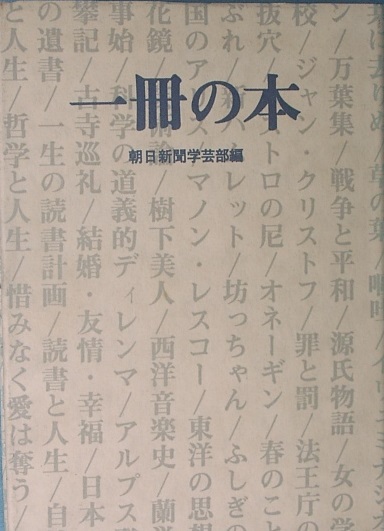 一冊の本
朝日新聞学芸部編
ン/万葉集/戦争と平和/源氏物語 女の学
校/ジャン・クリストフ/罪と罰/法王庁の
抜穴/カストロの尼/オネーギン/春のこと
ぶれ/新ハムレット/坊っちゃん/ふしぎの
国のアリス/マノン・レスコー/東洋の思想
花鏡/芸術論/樹下美人/西洋音楽史/蘭学
事始/科学の道義的ディレンマ/アルプス登
攀記/古寺巡礼/結婚・友情・幸福/日本
の遺書/一生の読書計画/読書と人生/自
と人生/哲学と人生/惜みなく愛は奪う/